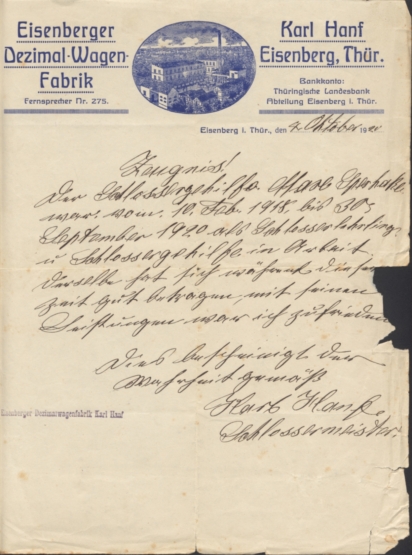 Eisenberger
Dezimal-Wagen-
Fabrik
Fernsprecher Nr. 275.
Karl Hanf
Eisenberg, Thür.
Bankkonto:
Thüringische Landesbank
Abteilung Eisenberg i. Thür.
Eisenberg i. Thür., den 2. Oktober 1920
Zeugnis!
Der Schlossergehilfe
war vom 10. Feb. 1918. bis 30.
September 1920 als Schlosserlehrling
u Schlossergehilfe in Arbeit
derselbe hat sich während dieser
Zeit gut betragen mit seinen
Leistungen war ich zufrieden
Dies bescheinigt der
Wahrheit gemäß
Karl Hanf.
Schlossermeister.
Eisenberger Dezimalwagenfabrik Karl Hanf